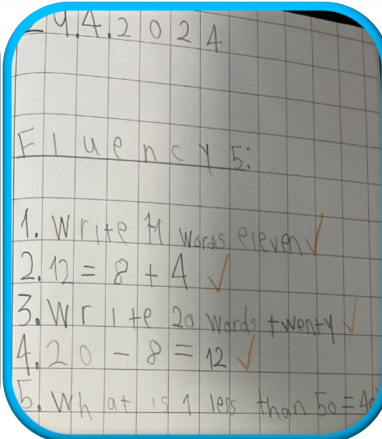 29.4.2024
Fluency 5:
1. Write 11 words eleven ✓
2. 12 = 8 + 4 ✓
3. Write 20 words twenty ✓
4. 20 - 8 = 12 ✓
5. What is 1 less than 50 =